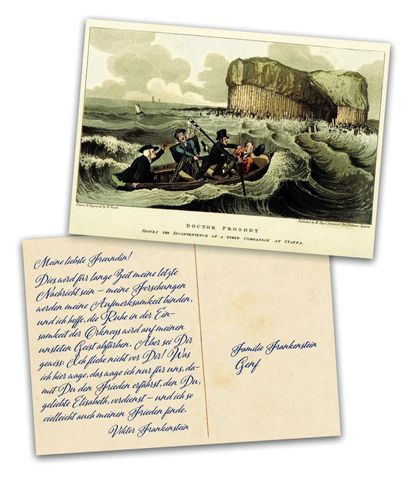 DOCTOR PROSODY
PROVES THE INCONVENIENCE OF A TIMID COMPANION AT STAFFA.
Meine liebste Freundin!
Dies wird für lange Zeit meine letzte
Nachricht sein – meine Forschungen
werden meine Aufmerksamkeit binden,
und ich hoffe, die Ruhe in der Ein-
samkeit der Orkneys wird auf meinen
unsteten Geist abfärben. Aber sei Dir
gewiss: Ich fliehe nicht vor Dir! Was
ich hier wage, das wage ich nur für uns, da-
mit Du den Frieden erfährst, den Du,
geliebte Elisabeth, verdienst – und ich so
vielleicht auch meinen Frieden finde.
Viktor Frankenstein
Familie Frankenstein
Genf